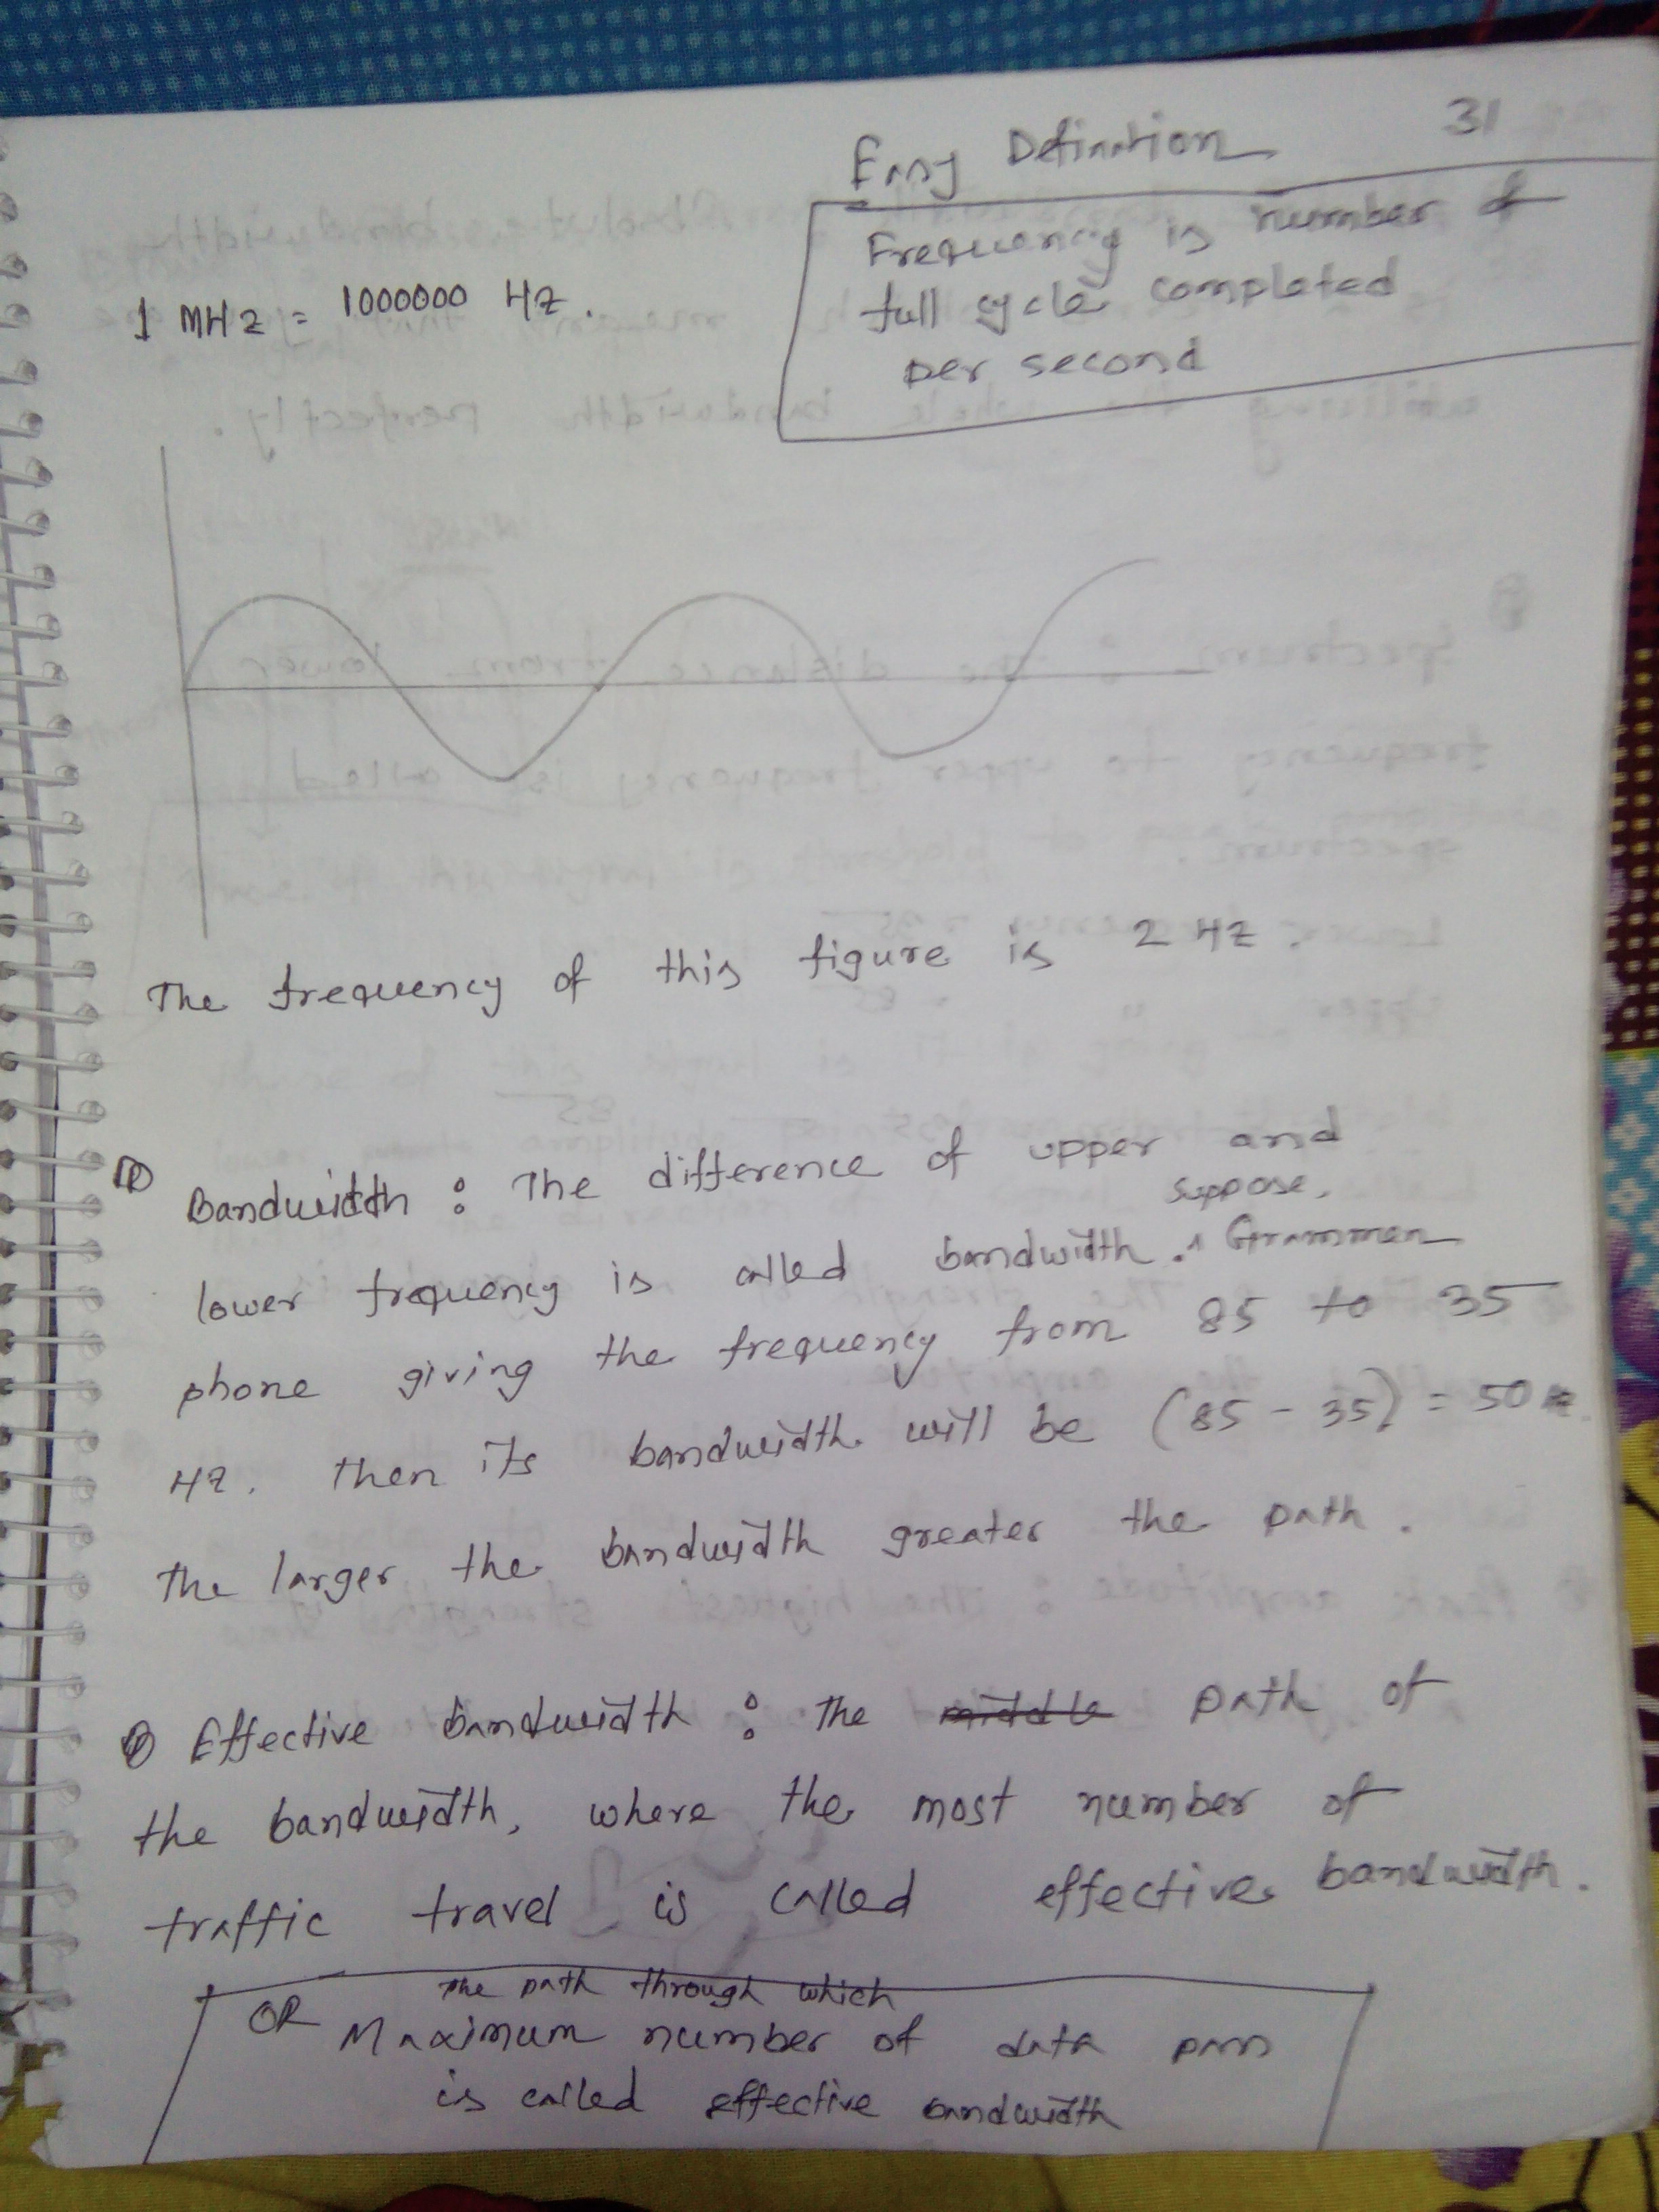 31
Easy Defination
Frequency is number of
full cycle completed
per second
1 MHz = 1000000 Hz.
The frequency of this figure is 2 Hz.
Bandwidth : The difference of upper and
lower frequency is called bandwidth. Suppose, Grammen
phone giving the frequency from 85 to 35
Hz. Then its bandwidth will be (85 - 35) = 50
The larger the bandwidth greater the path.
Effective bandwidth : The middle path of
the bandwidth, where the most number of
traffic travel is called effective bandwidth.
OR the path through which
Maximum number of data pass
is called effective bandwidth